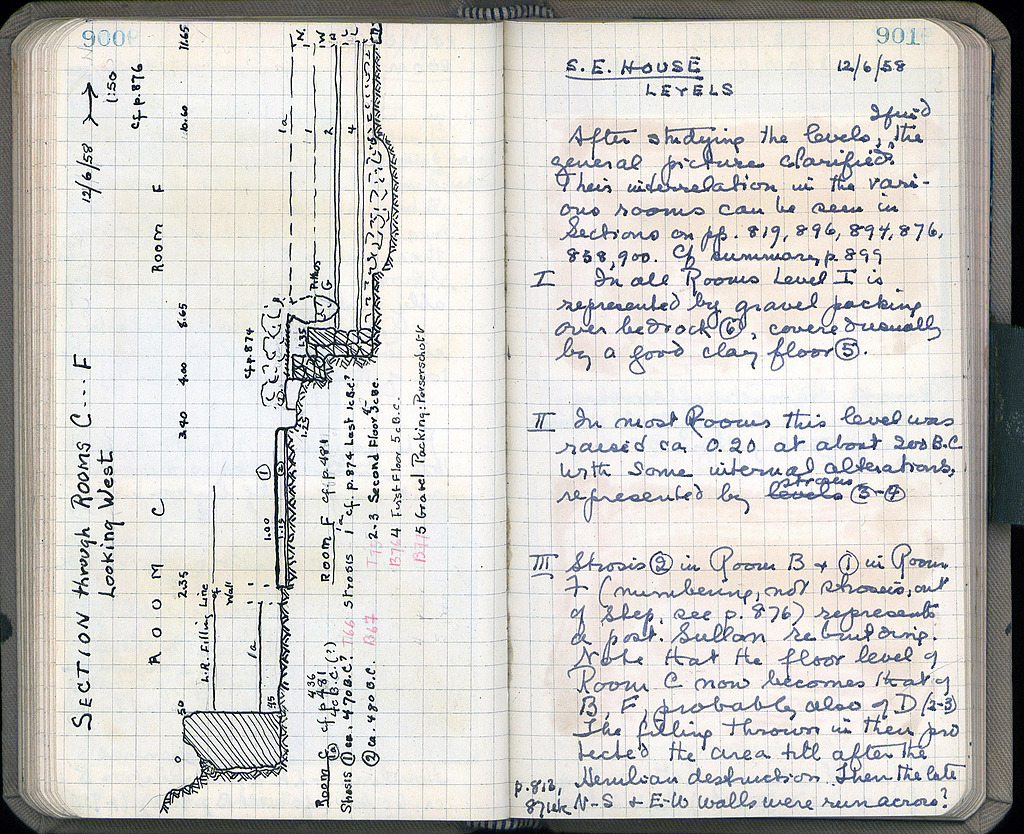 900
SECTION through ROOMS C...F
Looking West
12/6/58
1:50
cf p. 876
ROOM C
ROOM F
0
.50
2.35
3.40
4.00
8.65
10.60
11.65
L.R. Filling Line
of
Wall
1a
.45
1.00
1.15
1
2
1.25
cf p. 874
1.35
Pithos
G
1a
1
2
4
N.
W
Room C cf p. 481
436
1a 40 B.C. (?)
Strosis 1 ca. 470 B.C.? T66
2 ca. 480 B.C. B67
Room F cf p. 481
Strosis 1a cf. p. 874 Last 1c B.C.?
2-3 Second Floor 3c B.C.
4 First Floor 5c B.C.
5 Gravel Packing: Perserschutt
901
S.E. HOUSE 12/6/58
LEVELS
After studying the levels, I find the
general picture clarified.
Their interrelation in the vari-
ous rooms can be seen in
Sections on pp. 819, 896, 894, 876,
858, 900. Cf summary p 899
I In all Rooms Level I is
represented by gravel packing
over bedrock 6, covered usually
by a good clay floor 5.
II In most Rooms this level was
raised ca. 0.20 at about 200 B.C
with some internal alterations,
represented by levels stroses 3-4
III Strosis 2 in Room B + 1 in Room
F (numbering, not stroses, out
of step, see p. 876) represents
a post. Sullan rebuilding.
Note that the floor level of
Room C now becomes that of
B, F, probably also of D (2-3)
The filling thrown in then pro
tected the area till after the
Herulian destruction. Then the late
N-S + E-W walls were run across?
p. 812,